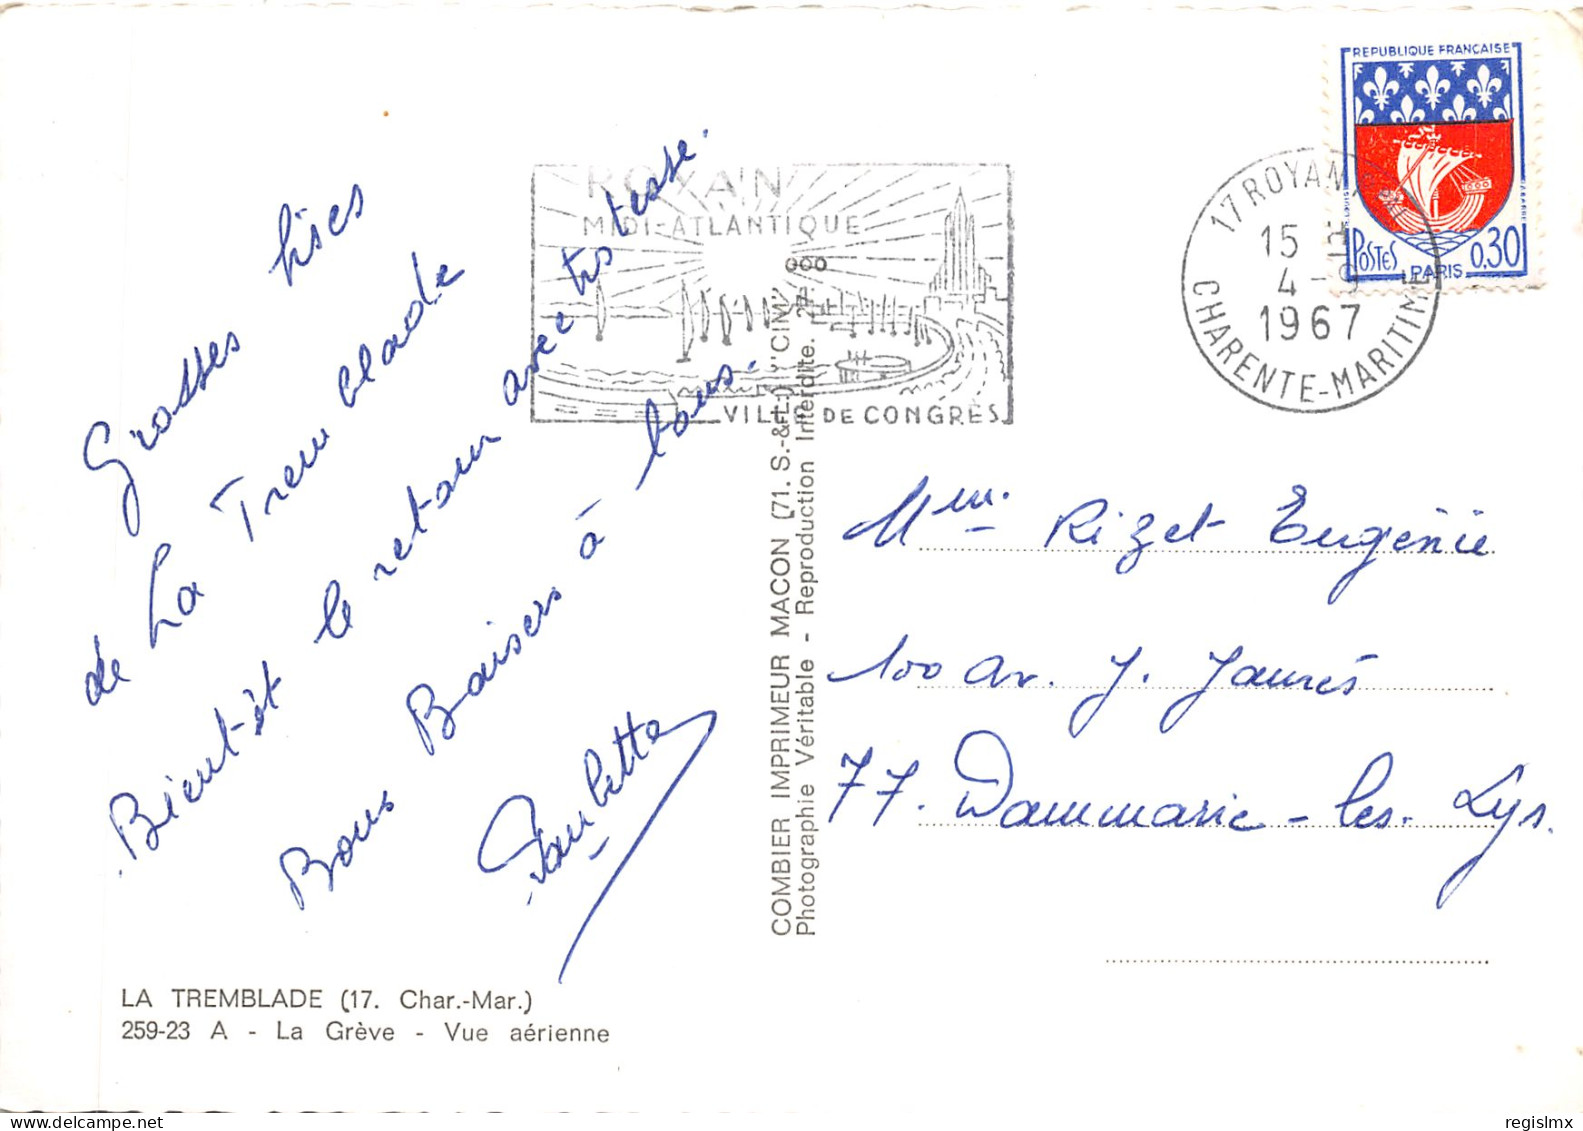 Grosses bises
de La Tremblade
Bient-ôt le retour avec tristesse.
Bons Baisers à tous.
Paulette
LA TREMBLADE (17. Char.-Mar.)
259-23 A - La Grève - Vue aérienne
COMBIER IMPRIMEUR MACON (71. S.-&-L.) "CIM"
Photographie Véritable - Reproduction Interdite.
ROYAN
MIDI-ATLANTIQUE
VILLE DE CONGRÈS
17 ROYAN
15 H
4-9
1967
CHARENTE-MARITIME
REPUBLIQUE FRANÇAISE
POSTES
PARIS
0,30
Mme Rizet Eugénie
100 av. J. Jaurès
77. Dammarie-les-Lys.
regislmx